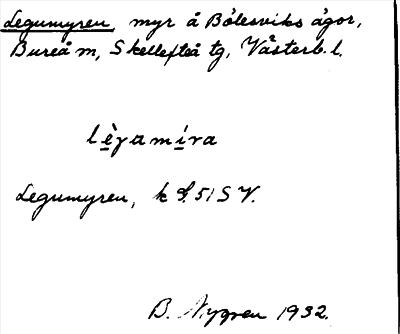 Legumyren, myr å Bölesviks ägor,
Bureå m, Skellefteå tg, Västerb. l.
lèγamíra
Legumyren, k f. 51 S V.
B. Nygren 1932.